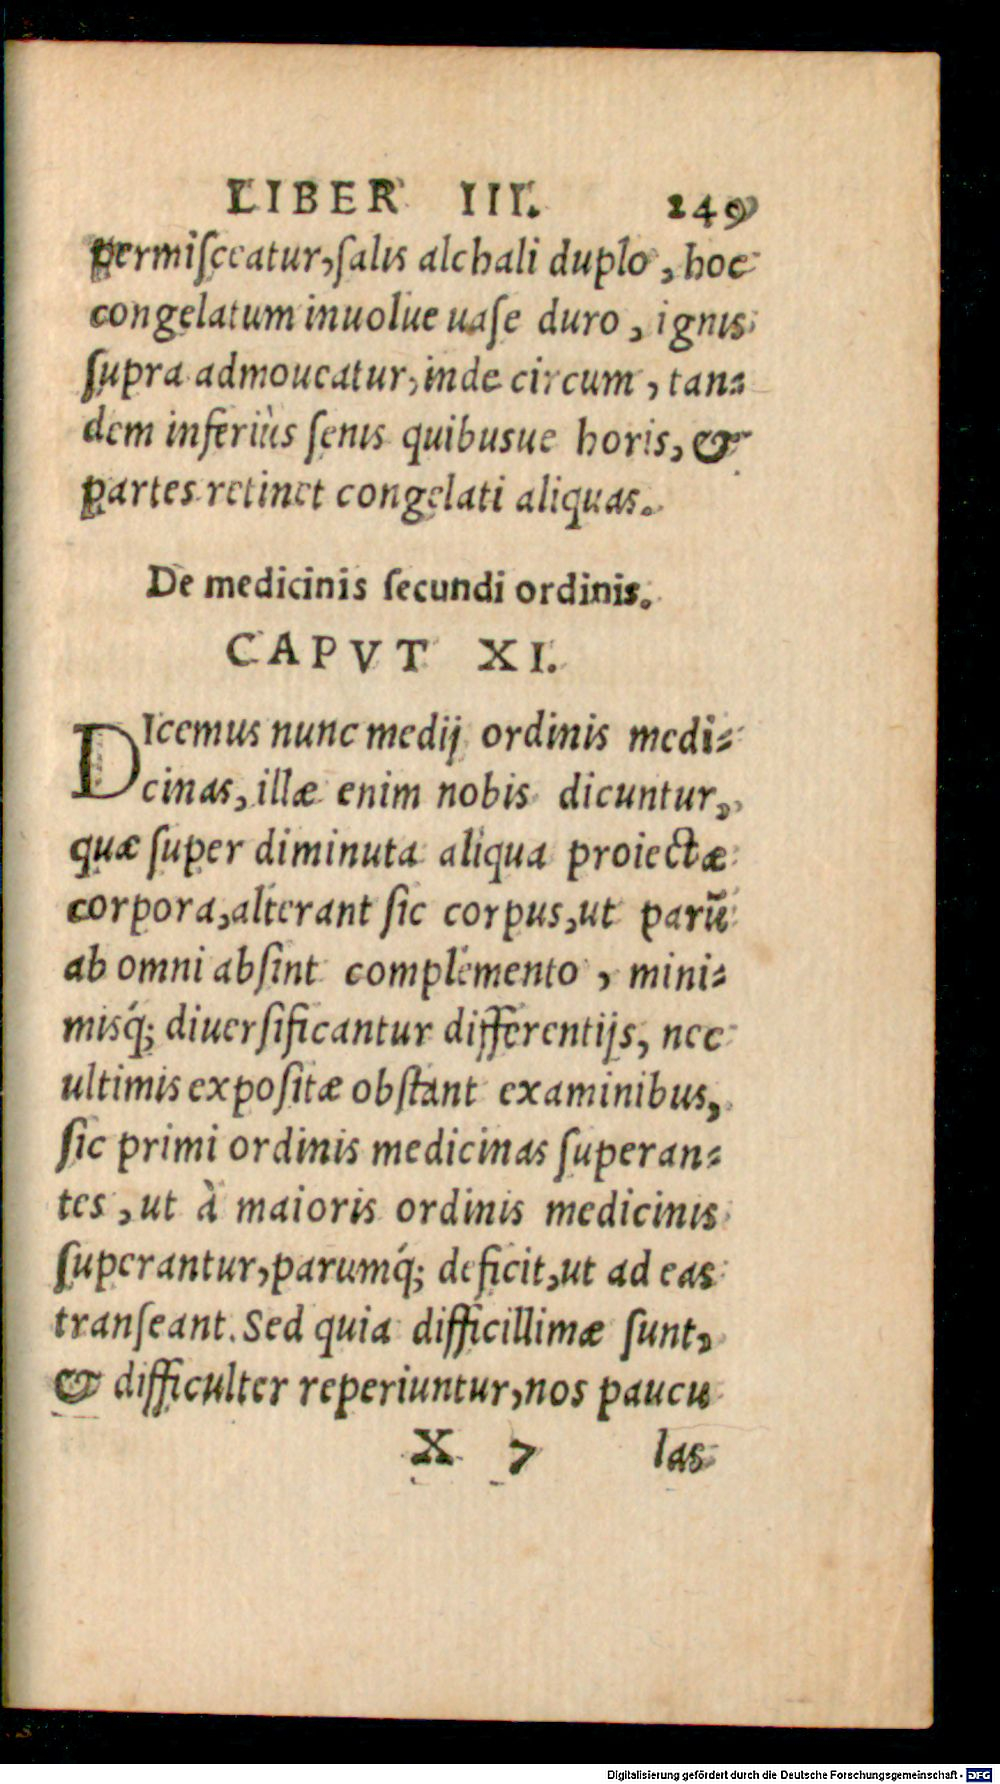 LIBER III. 249
permiſceatur, ſalis alchali duplo, hoc
congelatum inuolue uaſe duro, ignis
ſupra admoueatur, inde circum, tan⸗
dem inferiùs ſenis quibusue horis, &
partes retinet congelati aliquas.
De medicinis ſecundi ordinis.
CAPVT XI.
DIcemus nunc medij ordinis medi⸗
cinas, illæ enim nobis dicuntur,
quæ ſuper diminuta aliqua proiectæ
corpora, alterant ſic corpus, ut parũ
ab omni abſint complemento, mini⸗
misq́; diuerſificantur differentijs, nec
ultimis expoſitæ obſtant examinibus,
ſic primi ordinis medicinas ſuperan⸗
tes, ut à maioris ordinis medicinis
ſuperantur, parumq́; deficit, ut ad eas
tranſeant. Sed quia difficillimæ ſunt,
& difficulter reperiuntur, nos paucu
X 7 las
Digitalisierung gefördert durch die Deutsche Forschungsgemeinschaft - DFG